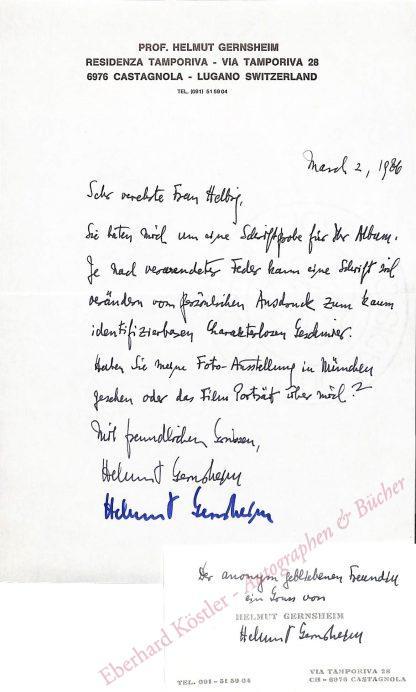 PROF. HELMUT GERNSHEIM
RESIDENZA TAMPORIVA - VIA TAMPORIVA 28
6976 CASTAGNOLA - LUGANO SWITZERLAND
TEL. (091) 51 59 04
March 2, 1986
Sehr verehrte Frau Helbig,
Sie baten mich um eine Schriftprobe für Ihr Album.
Je nach verwendeter Feder kann eine Schrift sich
verändern vom persönlichen Ausdruck zum kaum
identifizierbaren charakterlosen Geschmier.
Haben Sie meine Foto-Ausstellung in München
gesehen oder das Film Porträt über mich?
Mit freundlichen Grüssen,
Helmut Gernsheim
Helmut Gernsheim
Der anonym gebliebenen Freundin
ein Gruss von
HELMUT GERNSHEIM
Helmut Gernsheim
TEL. 091 - 51 59 04
VIA TAMPORIVA 28
CH - 6976 CASTAGNOLA
Eberhard Köstler - Autographen & Bücher